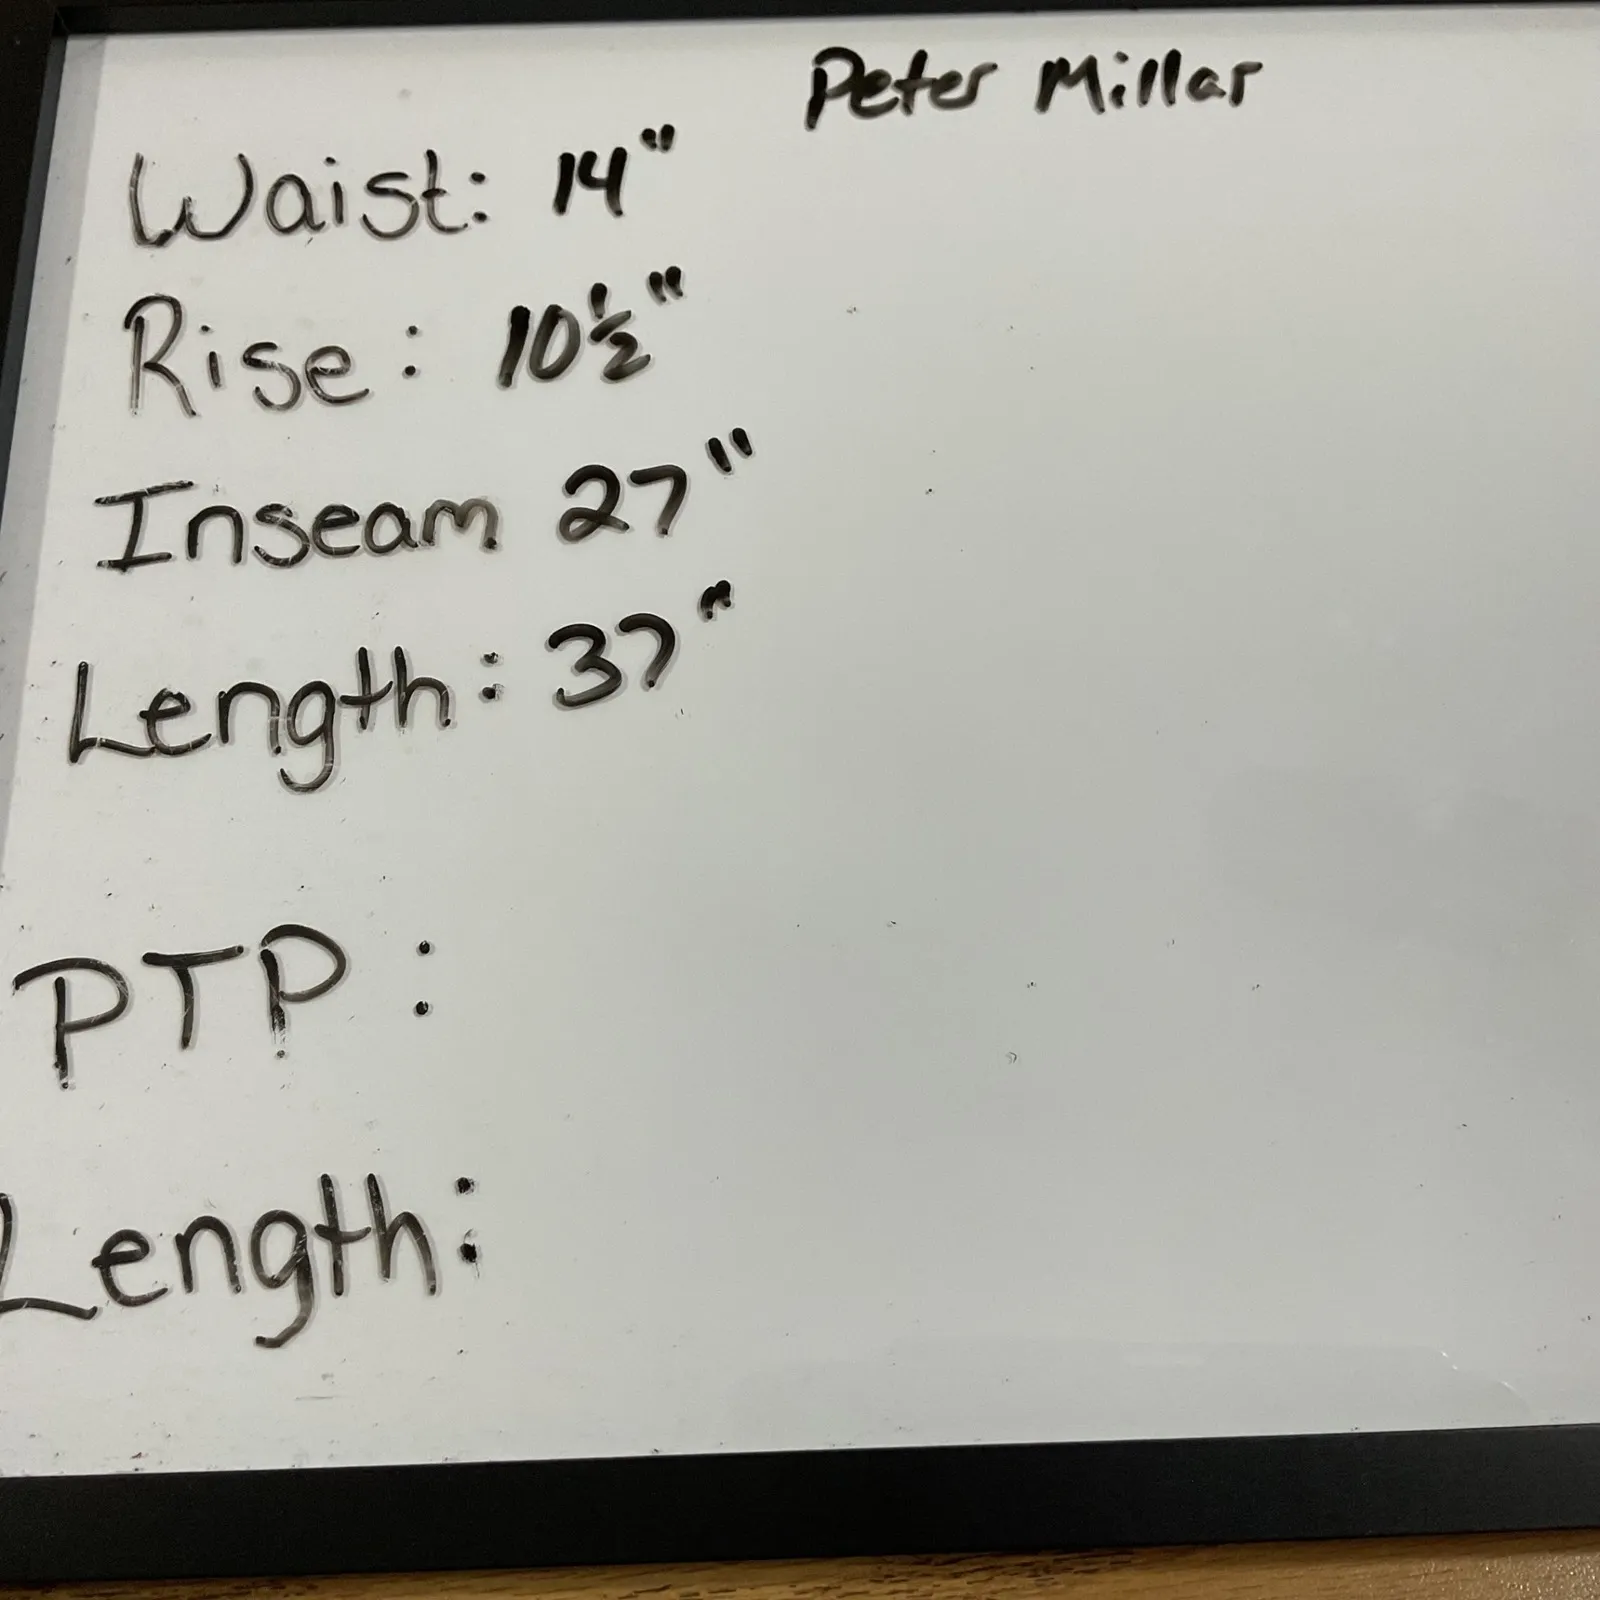 Peter Millar
Waist: 14"
Rise: 10½"
Inseam 27"
Length: 37"
PTP:
Length: